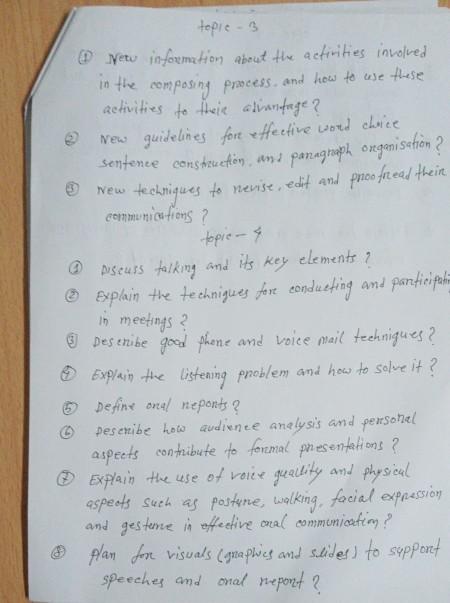 topic - 3
① New information about the activities involved
in the composing process. and how to use these
activities to their advantage?
② New guidelines for effective word choice
sentence construction, and paragraph organisation?
③ New techniques to revise, edit and proofread their
communications?
topic - 4
① Discuss talking and its key elements?
② Explain the techniques for conducting and participating
in meetings?
③ Describe good phone and voice mail techniques?
④ Explain the listening problem and how to solve it?
⑤ Define oral reports?
⑥ Describe how audience analysis and personal
aspects contribute to formal presentations?
⑦ Explain the use of voice quallity and physical
aspects such as posture, walking, facial expression
and gesture in effective oral communication?
⑧ plan for visuals (graphics and slides) to support
speeches and oral report?